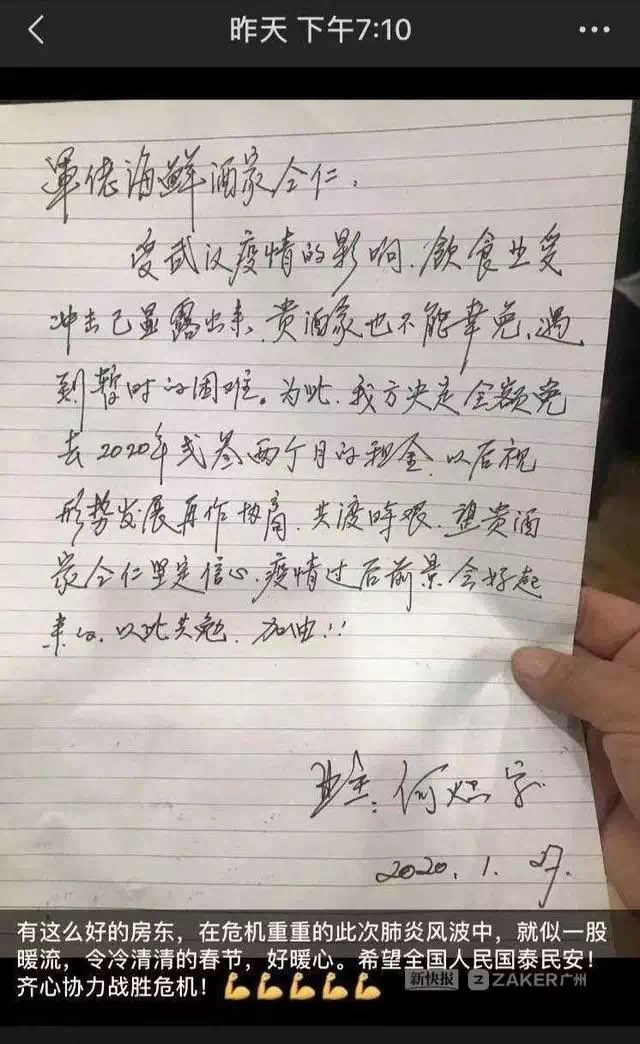 昨天 下午7:10
渾佬海鲜酒家仝仁.
受武汉疫情的影响.飲食业受
冲击已显露出来.贵酒家也不能幸免.遇
到暂时的困难。为此.我方决定全额免
去2020年贰叁两个月的租金.以后视
形势发展再作协商.共渡時艰.望贵酒
家仝仁坚定信心.疫情过后前景会好起
来的.以此共勉.加油!!
业主:何
2020.1.27.
有这么好的房东，在危机重重的此次肺炎风波中，就似一股
暖流，令冷清清的春节，好暖心。希望全国人民国泰民安！
齐心协力战胜危机！💪💪💪💪💪
新快报 ZAKER广州